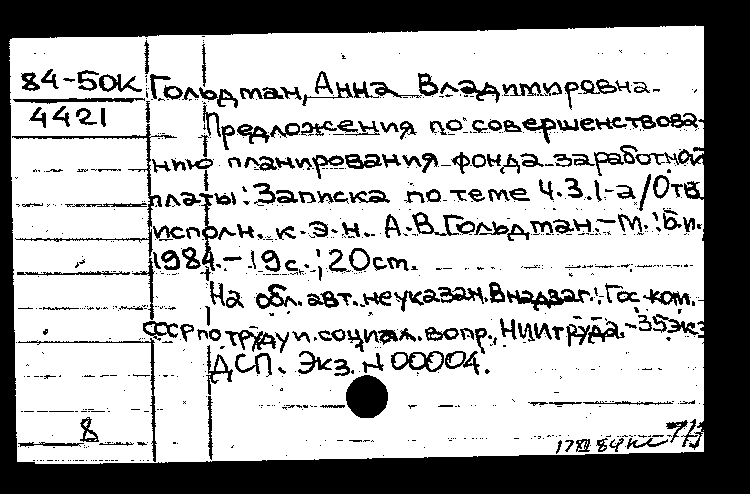 84-50К Гольдман, Анна Владимировна.
4421
Предложения по совершенствова-
нию планирования фонда заработной
платы: Записка по теме 4.3.1-а/Отв.
исполн. к.э.н. А.В.Гольдман.-М.:Б.и.,
1984.-19с.;20ст.
На обл.авт.не указан.В надзаг.:Гос.ком.
СССР по труду и социал.вопр., НИИ труда.-35экз
ДСП. Экз.N00004.
8